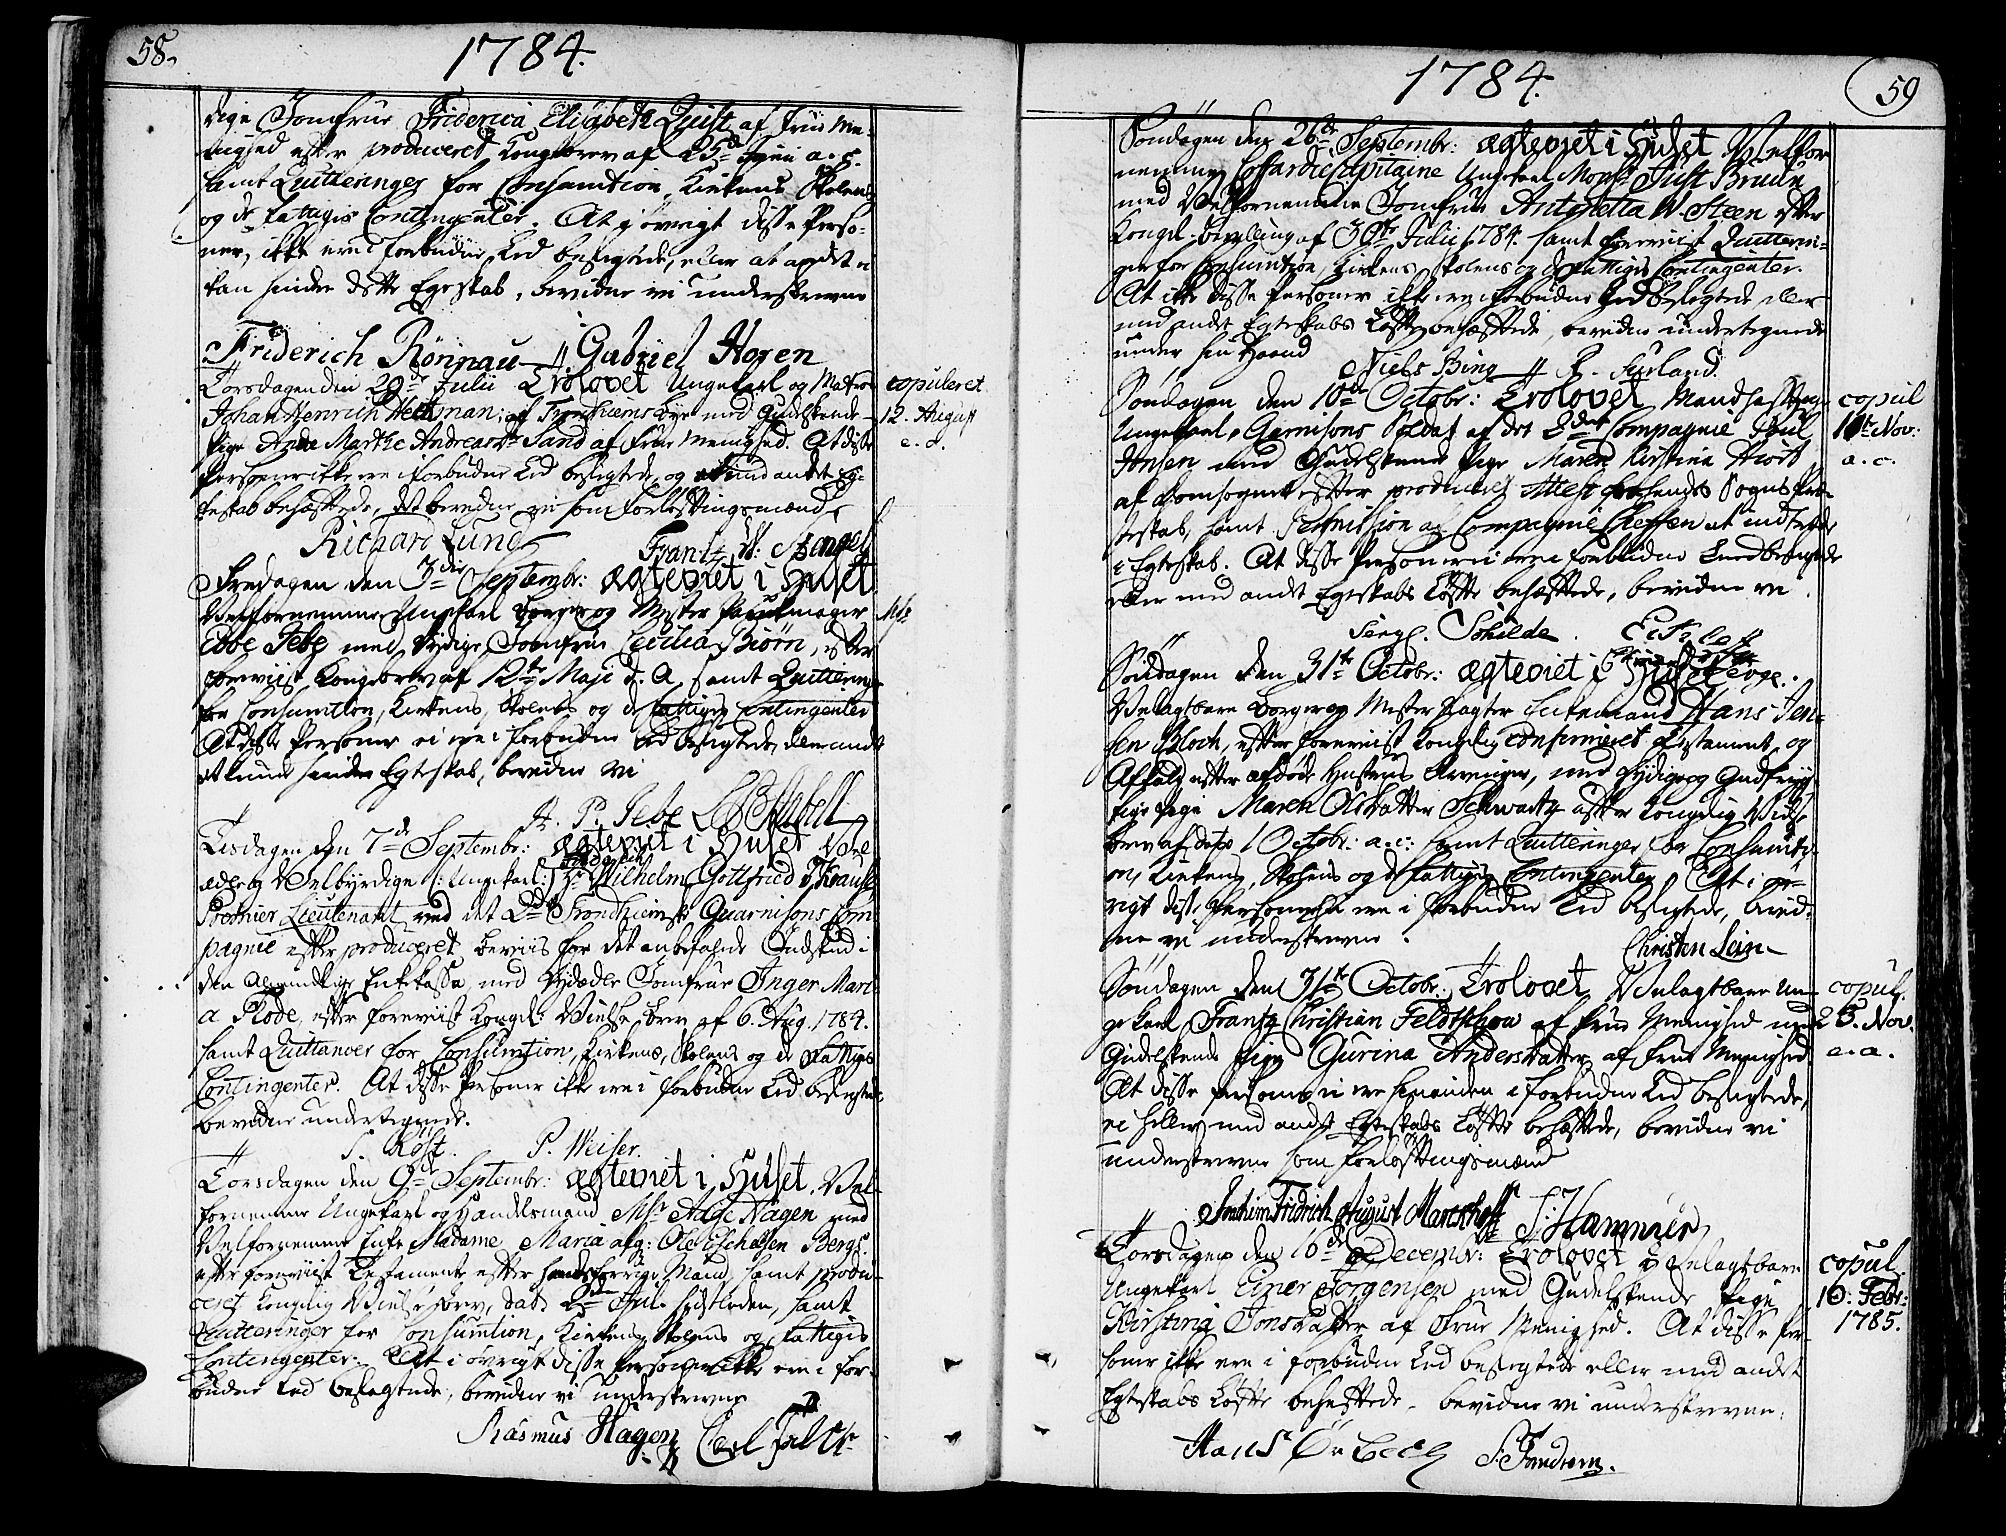 58.
1784.
dige Jomfrue Friderica Elisabeth Quist af Frue Me-
nighed efter produceret Kongebrev af 25de Junii a. c.
samt Qvitteringer for Consumtion, Kirkens Skolens
og de Fattigis Contingenter. At j øvrigt disse Perso-
ner, ikke ere i forbudne Led beslegtede, eller at andet ei
kan hindre dette Egteskab, bevidne vi underskrevne
Friderich Rönnau Gabriel Horen
Torsdagen den 29de Julii Trolovet Ungekarl og Matros
Johan Henrich Heitman af Trondhiems bye med Gudelskende
Pige Anne Marthe Andreasdr Sand af Frue Menighed. At disse
Personer ikke ere i forbudne Led beslegtede, og ei med andet Eg-
teskab behæftede, det bevidne vi som Forløftingsmænd
Richard Lund Frantz W: Stengel
copuleret
12. August
a. c.
Fredagen den 3die Septembr: ægteviet i Huset
Velfornemme Ungekarl Borger og Mester Paruqmager
Ebbe Jebe med Dydige Jomfrue Cecilia Biørn, efter
foreviist Kongebrev af 12te Maji d. A. samt Qvitteringer
for Consumtion, Kirkens, Skolens og de Fattiges Contingenter
At disse Personer ei ere i forbudne Led beslegtede, eller andet
at kunde hindre Egteskab, bevidne vi
H. P. Jebe
Tisdagen den 7de Septembr: ægteviet i Huset Vel
ædle og Velbyrdige (: Ungekarl :) Hr Wilhelm Gottfried Krause
Premier Lieutenant ved det 2det Trondhiemske Quarnisons Com-
pagnie efter produceret beviis for det anbefalede Indskud i
den almindelige Enkekasse, med Dydædle Jomfrue Inger Mari-
a Rode, efter foreviist Kongel: Vielse brev af 6. Aug. 1784.
samt Quittancer for Consumtion, Kirkens, Skolens og de Fattiges
Contingenter. At disse Personer ikke ere i forbudne Led beslegtede
bevidner undertegnede.
S. Röst. P. Weiser.
Torsdagen den 9de Septembr: ægteviet i Huset. Vel-
fornemme Ungekarl og Handelsmand Msr Aage Hagen med
Velfornemme Enke Madame Maria afg: Ole Bergs
efter foreviist Testamente efter hendes forrige Mand, samt produ-
ceret Kongelig Vielsesbrev, dat. 2den Jul. sidstleden, samt
Qvitteringer for Consumtion, Kirkens, Skolens og Fattiges
Contingenter. At i øvrigt disse Personer ikke ere i for-
budne Led beslegtede, bevidne vi underskrevne
Rasmus Hagen Carl Falch
59
1784.
Søndagen den 26de Septembr: ægteviet i Huset Velfor
nemme Coffardie Capitaine Ungekarl Monsr Just Bruun
med Velfornemme Jomfrue Antonetta W. Steen efter
Kongel. bevilling af 30te Julii 1784. samt foreviist Quitterin-
ger for Consumtion, Kirkens Skolens og de Fattigis Contingenter.
At ikke disse Personer ikke ere i forbudne Led beslegtede eller
med andet Egteskabs Løfte behæftede, bevidne undertegnede
under sin Haand
Niels Bing R. Furland.
Søndagen den 10de Octobr: Trolovet Mandhaftige
Ungekarl, Garnisons Soldat af det 2det Compagnie Poul
Jonsen med Gudelskende Pige Maren Kirstina Hiort
af Domsognet efter produceret Attest fra hendes Sogne Præ-
steskab, samt Permission af Compagnie Cheffen at indtræde
i Egteskab. At disse Personer ei ere i forbudne Leed beslegtede
eller med andet Egteskabs Løfte behæftede, bevidne vi
Sergt. Schilde.
copul
11te Nov:
a. c.
Søndagen den 31te Octobr: ægteviet i Huset
Velagtbare Borger og Mester Slagter Enkemand Hans Jen-
sen Bloch, efter foreviist Kongelig confirmeret Testament, og
Afkald efter afdøde Hustrues Arvinger, med Dydige og Gudfryg-
tige Pige Maren Olsdatter Schwartz efter Kongelig Vielse
brev af dato 1 Octobr: a. c: samt Quitteringer for Consumti-
on, Kirkens, Skolens og de Fattiges Contingenter. At i øv-
rigt disse Personer ei ere i forbudne Led beslegtede, bevid-
ne vi underskrevne.
Christen Lein
Søndagen den 31te Octobr. Trolovet Velagtbare Un-
ge Karl Frantz Christian Feldtschou af Frue Menighed med
Gudelskende Pige Gurina Andersdatter af Frue Menighed
At disse Personer ei ere hinanden i forbudne Led beslegtede,
ei heller med andet Egteskabs Løfte behæftede, bevidne vi
underskrevne som forløftingsmænd
Jochim Fridrich August Marckhoff S: Hammer
copul.
26. Nov.
a. a.
Torsdagen den 16de Decembr: Trolovet Velagtbare
Ungekarl Einer Jørgensen med Gudelskende Pige
Kirstina Jonsdatter af Frue Menighed. At disse Per-
soner ikke ere i forbudne Led beslegtede eller med andet
Egteskabs Løfte behæftede, bevidne vi underskrevne:
copul.
10: Febr:
1785.